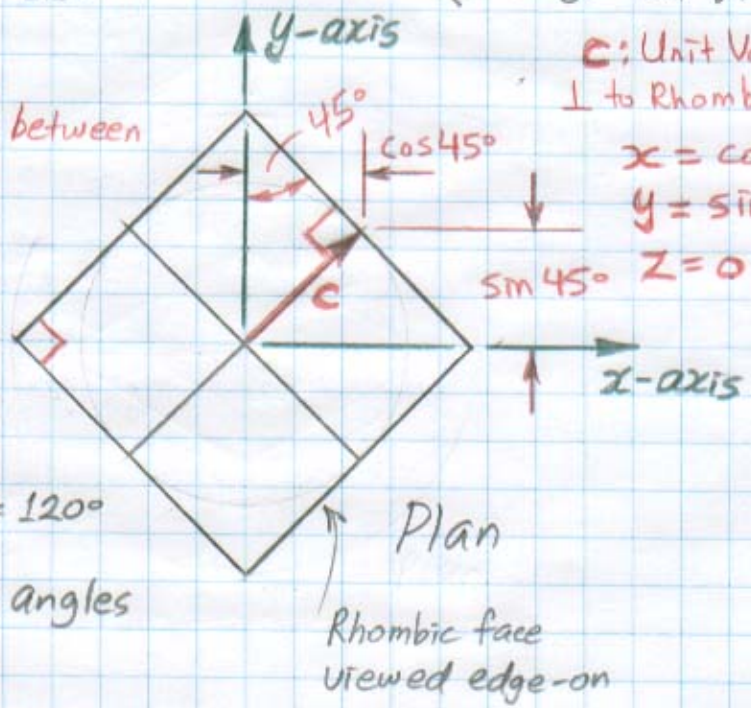 y-axis
C: Unit
⊥ to
between
45°
cos45°
x =
y =
z = 0
sin 45°
C
x-axis
= 120°
Plan
angles
Rhombic face
viewed edge-on